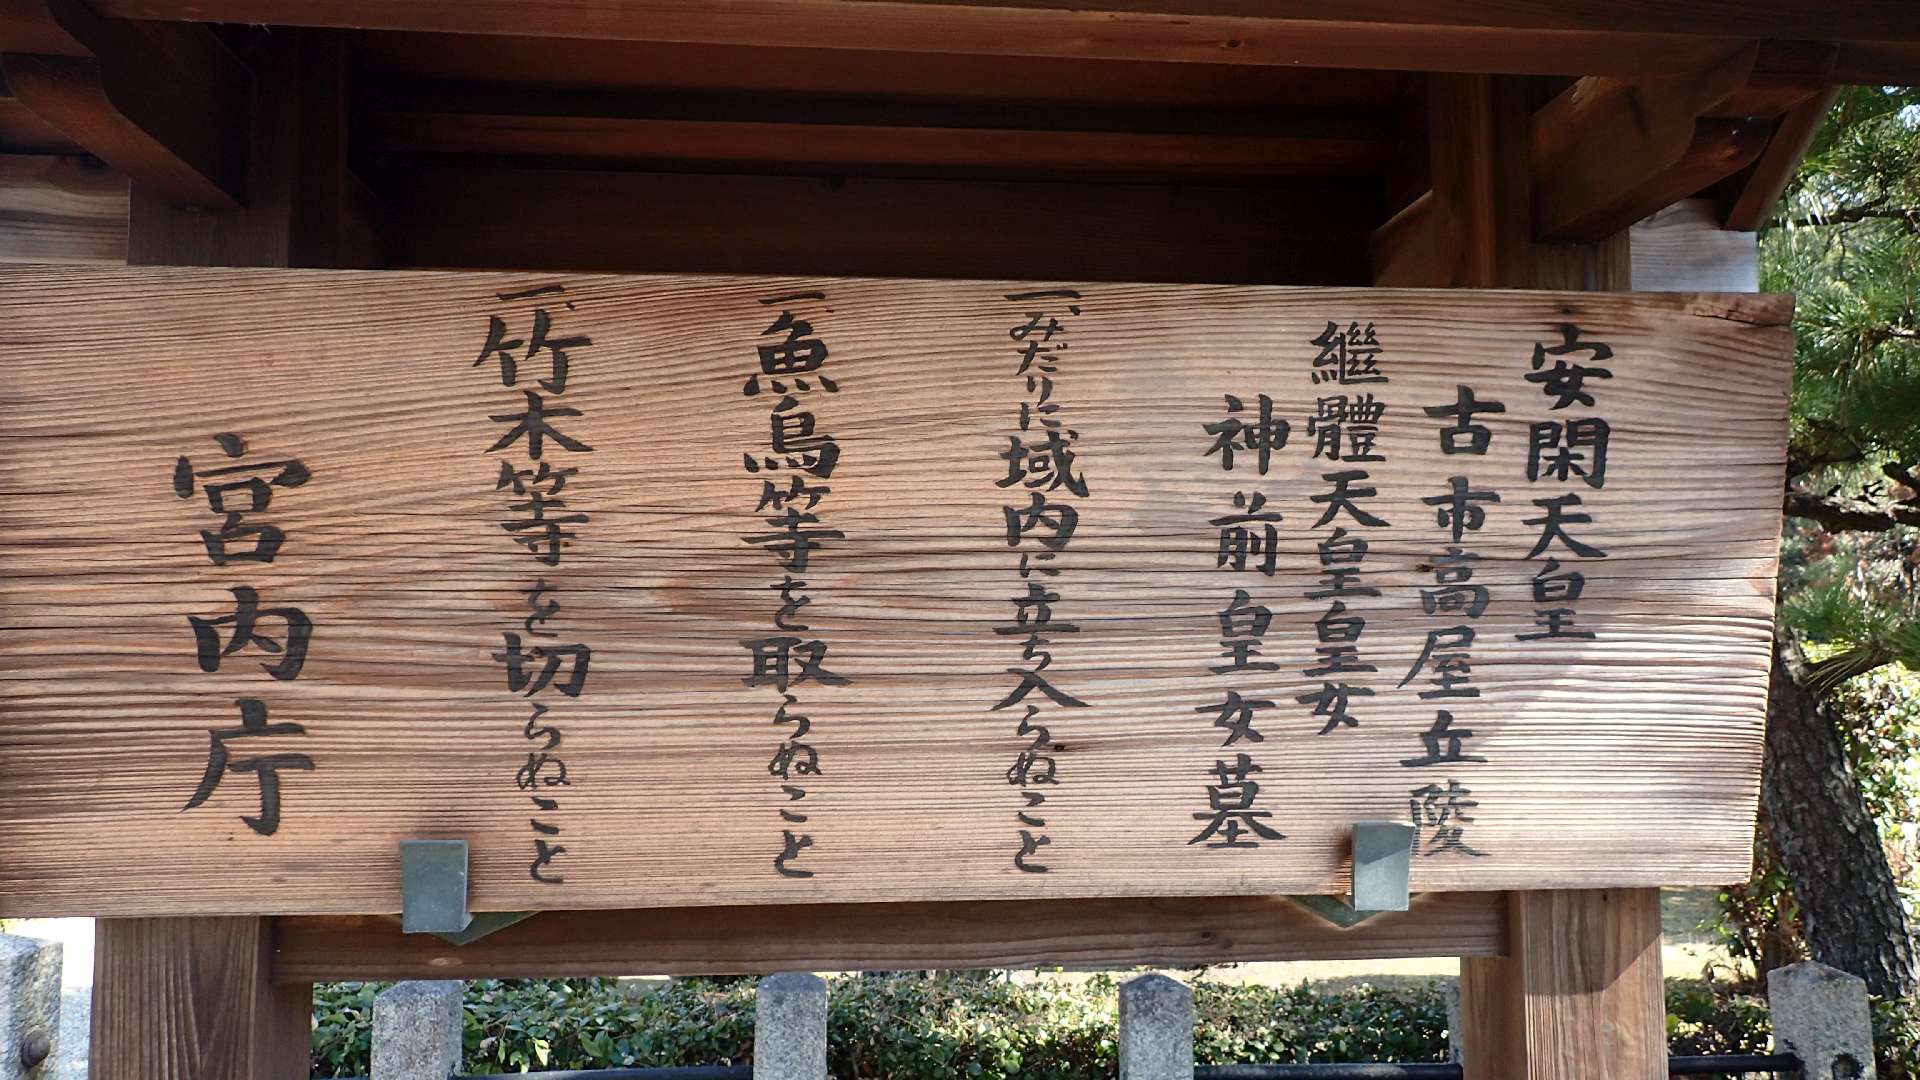 安閑天皇
古市高屋丘陵
繼體天皇皇女
神前皇女墓
一、みだりに域内に立ち入らぬこと
一、魚鳥等を取らぬこと
一、竹木等を切らぬこと
宮内庁